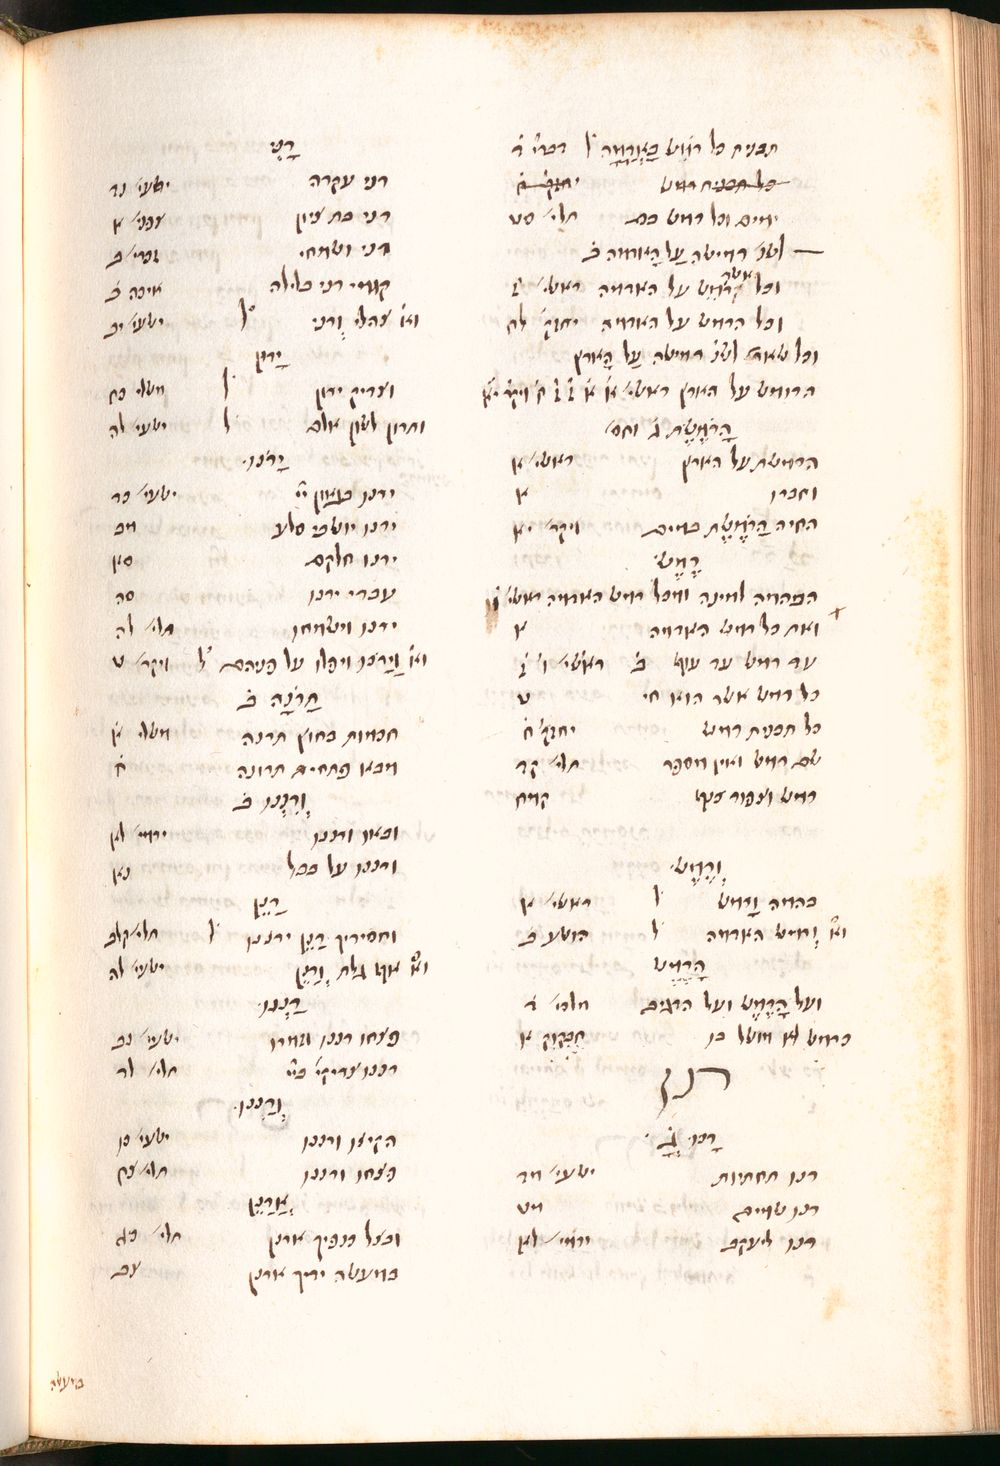 תבנית כל רֹמֵשׂ בָּאֲדָמָה ל׳ דברי׳ ד
כל תבנית רמש יחזק׳ ח
ימים וכל רמש בם תלי׳ סט
לשנ׳ רמישה עַל הָאדמה ב׳
וכל אשר רֹמֵשׂ על האדמה ראשי׳ ז
וכל הרמש על האדמה יחזק׳ לח
וכל שאר׳ לשנ׳ רמישה עַל הָארץ
הרומש על הארץ ראשי׳ א א ז ז ח ויקר׳ יא
הָרֹמֶשֶׂת ג׳ וחס׳
הרמשת על הארץ ראשי׳ א
וחברו א
החיה הָרֹמֶשֶׂת במים ויקר׳ יא
רֶמֶשׂ
הבהמה למינה ומכל רמש האדמה ראשי׳ ו
ואת כל רמש האדמה א
עד רמש עד עוף ב׳ ראשי׳ ו ז
כל רמש אשר הוא חי ט
כל תבנית רמש יחזק׳ ח
שם רמש ואין מספר תלי׳ קד
רמש וצפור כנף קמח
וָרֶמֶשׂ
בהמה וָרמש ל׳ ראשי׳ א
וא׳ וְרמש האדמה ל׳ הושע ב
הָרֶמֶשׂ
ועל הָרֶמֶשׂ ועל הדגים מלכי׳ ד
כרמש לא משל בו חֲבַקּוּק א
רנן
רָנּוּ ג׳
רנו תחתיות ישעי׳ מד
רנו שמים מט
רנו ליעקב ירמי׳ לא
רָנִּי
רני עקרה ישעי׳ נד
רני בת ציון צפני׳ ג
רני ושמחי זכרי׳ ב
קומי רני בלילה איכה ב
וא׳ צהלי וָרני ל׳ ישעי׳ יב
יָרוּן
וצדיק ירון ל׳ משלי כט
ותרון לשון אלם ל׳ ישעי׳ לה
יָרֹנּוּ
ירנו בגאון יי׳ ישעי׳ כד
ירנו יושבי סלע מב
ירנו חלקם סא
עבדי ירנו סה
ירנו וישמחו תלי׳ לה
וא׳ וַיָּרֹנּוּ ויפלו על פניהם ל׳ ויקר׳ ט
תָּרֹנָּה ב׳
חכמות בחוץ תרנה משלי א
מבא פתחים תרונה ח
וְרִנְּנוּ ב׳
ובאו ורננו ירמי׳ לא
ורננו על בבל נא
רַנֵּן
וחסידיך רַנֵּן ירננו ל׳ תלי׳ קלב
וא׳ אף גילת וְרַנֵּן ישעי׳ לה
רַנְּנוּ
פצחו רננו יחדו ישעי׳ נב
רננו צדיקי׳ ביי׳ תלי׳ לג
וְרַנְּנוּ
הקיצו ורננו ישעי׳ כו
פצחו ורננו תלי׳ צח
אֲרַנֵּן
ובצל כנפיך ארנן תלי׳ סג
במעשה ידיך ארנן צב
במעשה